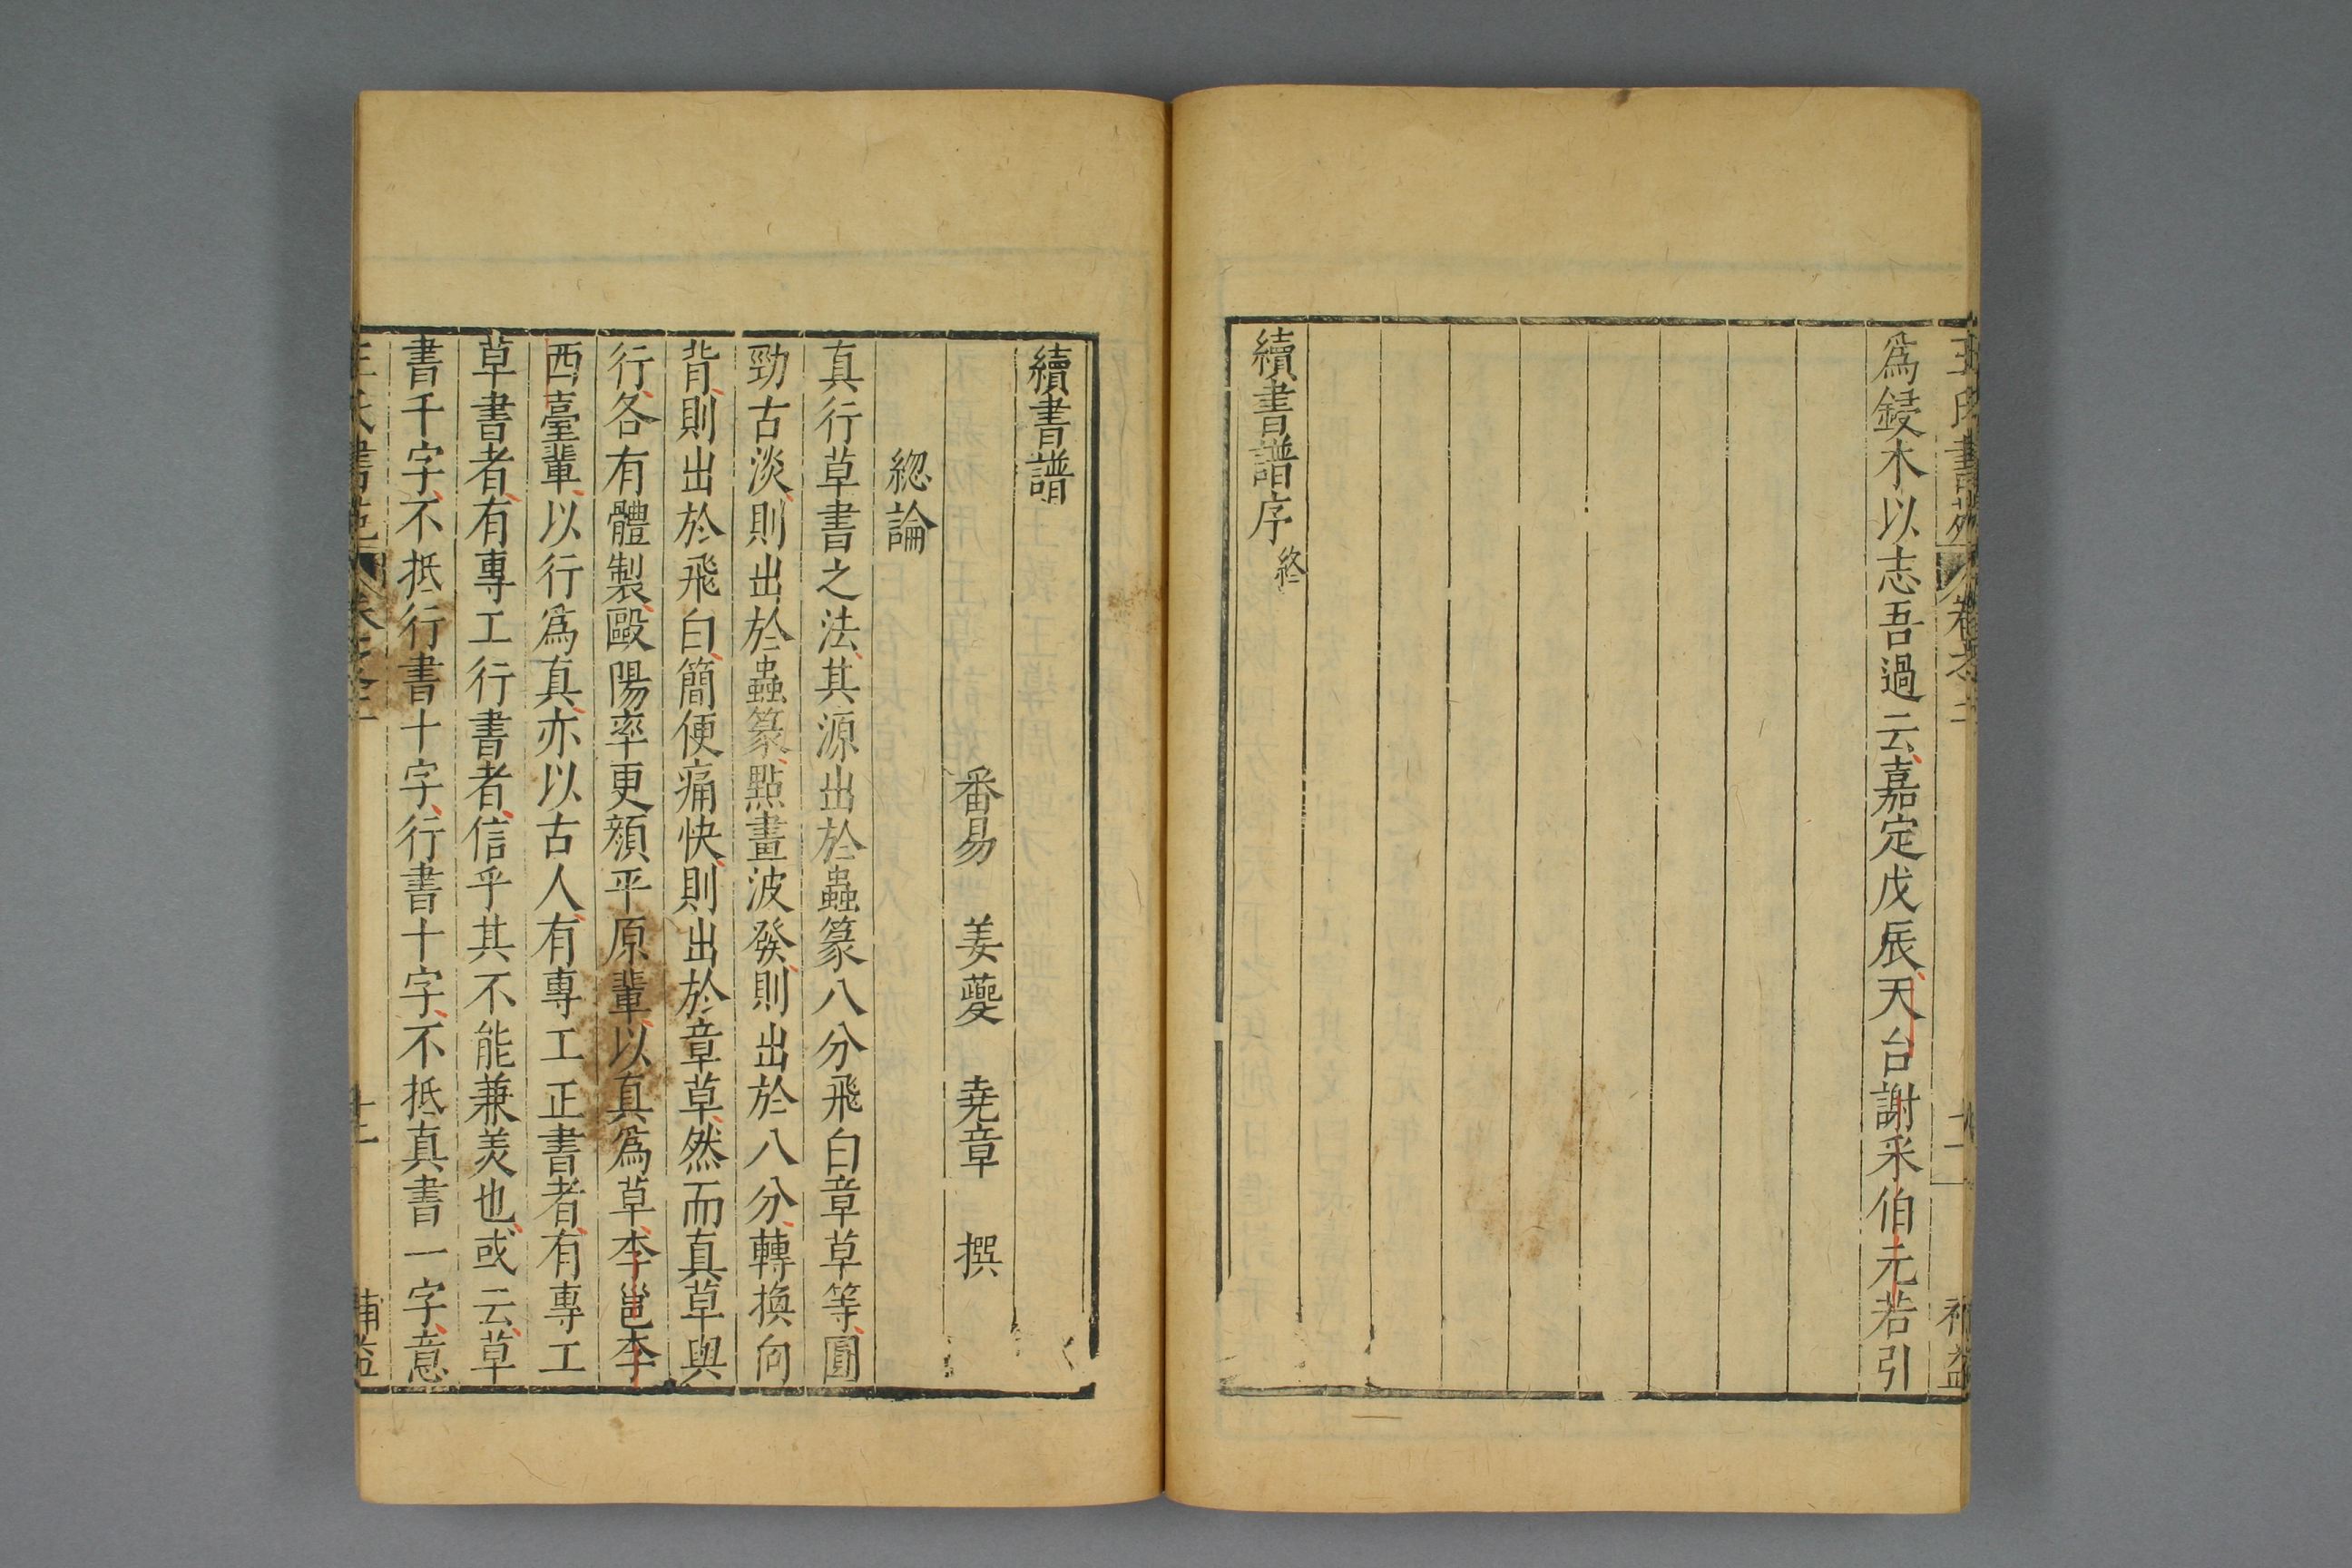 爲鋟木以志吾過云嘉定戊辰天台謝采伯元若引
續書譜序終
續書譜
番昜 姜夔 尭章 撰
緫論
真行草書之法其源出於蟲篆八分飛白章草等圓
勁古淡則出於蟲篆點畫波發則出於八分轉換向
背則出於飛白簡便痛快則出於章草然而真草與
行各有體製歐陽率更顔平原輩以真爲草李邕李
西臺輩以行爲真亦以古人有專工正書者有專工
草書者有專工行書者信乎其不能兼美也或云草
書千字不抵行書十字行書十字不抵真書一字意